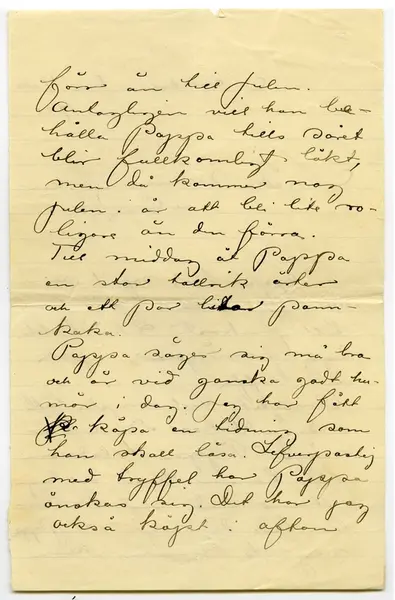 förr än till Julen.
Antagligen vill han be-
hålla Pappa tills såret
blir fullkomligt läkt,
men då kommer nog
Julen i år att bli lite ro-
ligare än den förra.
Till middag åt Pappa
en stor tallrik ärter
och ett par bitar pann-
kaka.
Pappa säger sig må bra
och är vid ganska godt hu-
mör i dag. Jag har fått
köpa en tidning som
han skall läsa. Lefverpastej
med tryffel har Pappa
önskat sig. Det har jag
också köpt i afton